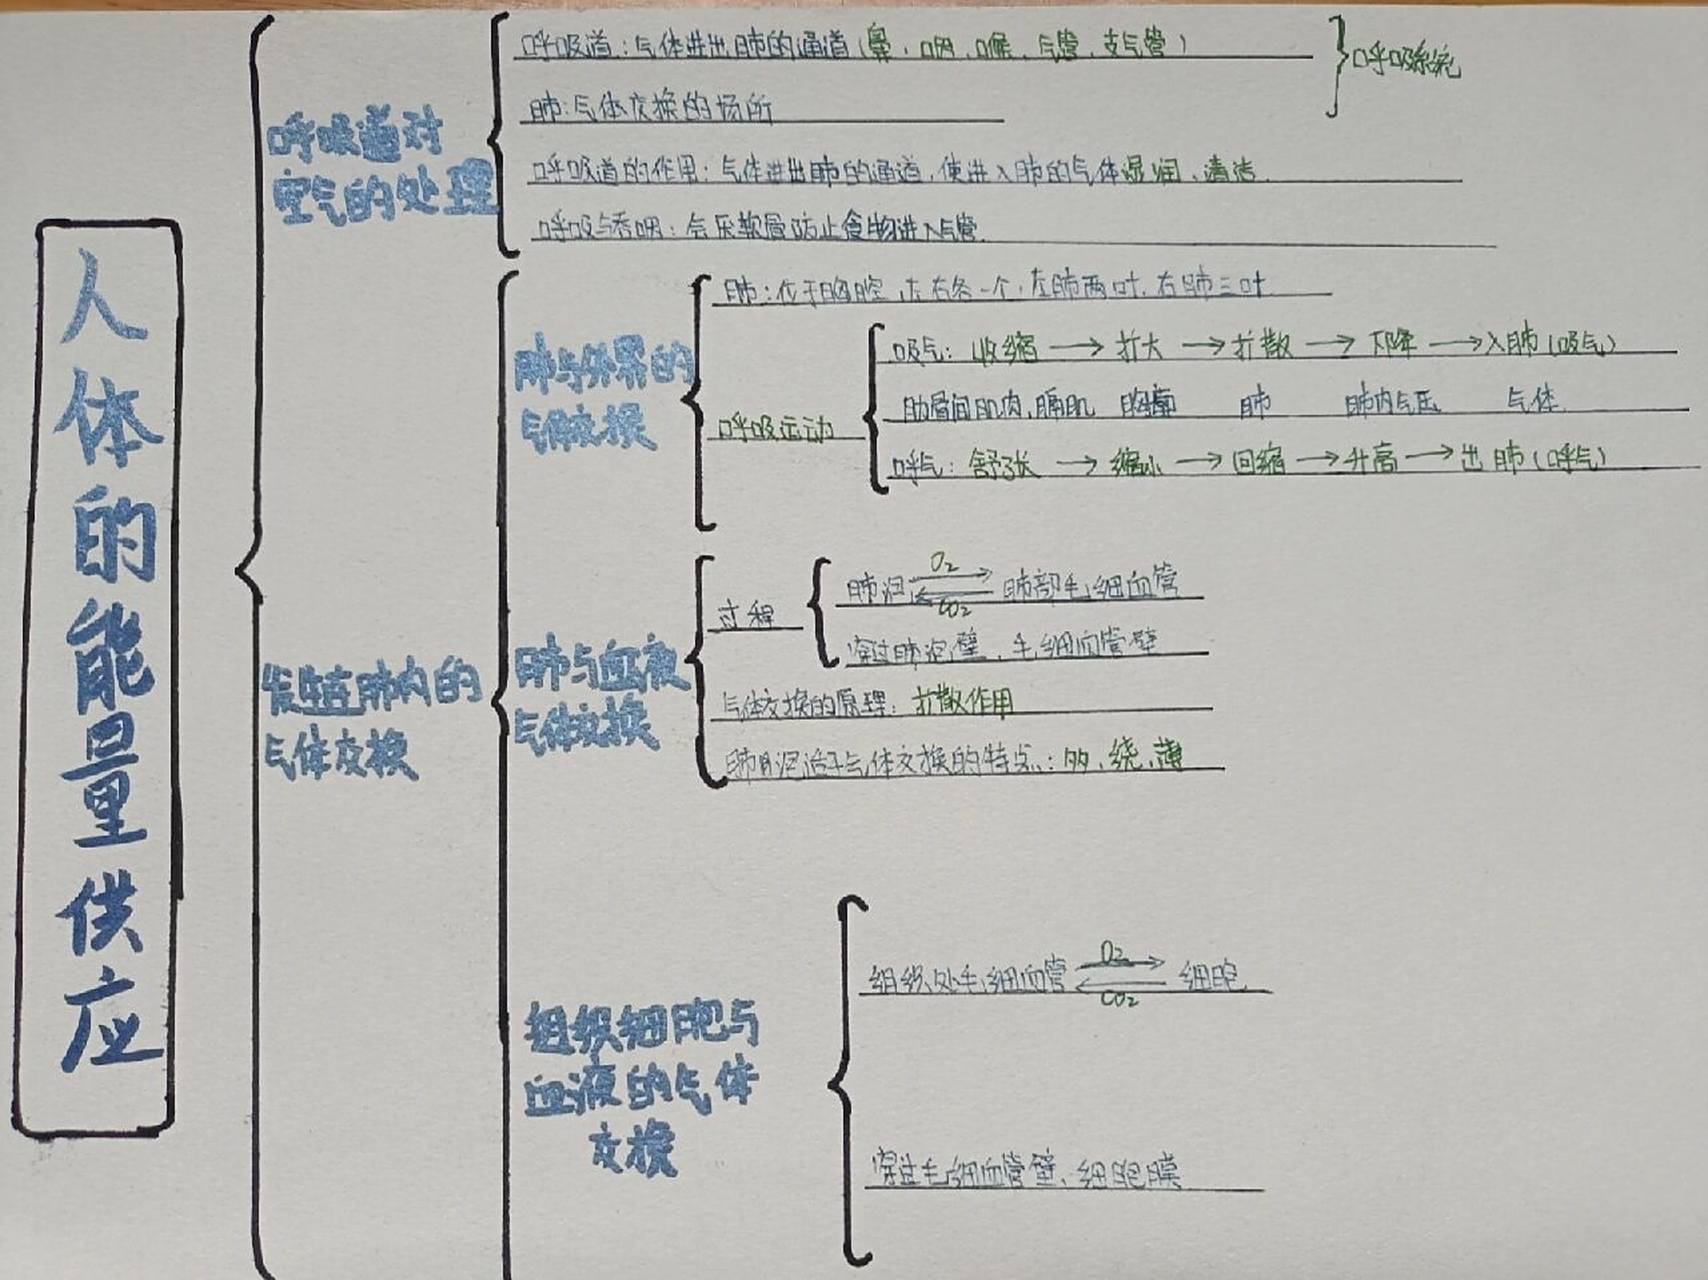 人体的能量供应
呼吸道对
空气的处理
呼吸道：气体进出肺的通道（鼻、咽、喉、气管、支气管）
呼吸系统
肺：气体交换的场所
呼吸道的作用：气体进出肺的通道，使进入肺的气体湿润、清洁
呼吸与吞咽：会厌软骨防止食物进入气管
发生在肺内的
气体交换
肺与外界的
气体交换
肺：位于胸腔，左右各一个，左肺两叶，右肺三叶
呼吸运动
吸气：收缩→扩大→扩散→下降→入肺（吸气）
肋骨间肌肉，膈肌 胸廓 肺 肺内气压 气体
呼气：舒张→缩小→回缩→升高→出肺（呼气）
肺与血液
气体交换
过程
肺泡 O₂ ⇌ CO₂ 肺部毛细血管
穿过肺泡壁、毛细血管壁
气体交换的原理：扩散作用
肺泡适于气体交换的特点：多、绕、薄
组织细胞与
血液的气体
交换
组织处毛细血管 O₂ ⇌ CO₂ 细胞
穿过毛细血管壁、细胞膜